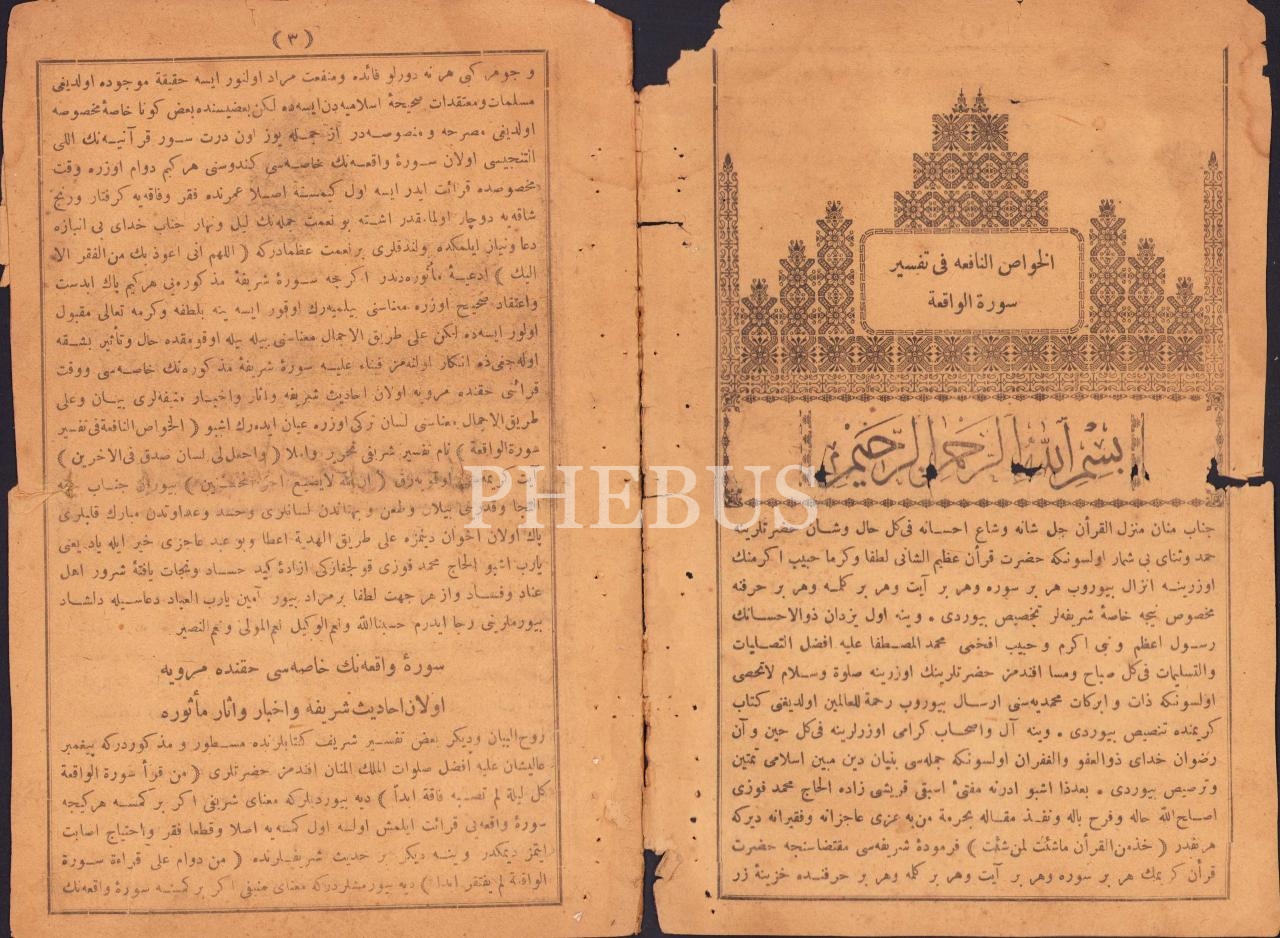 الخواص النافعه فى تفسير
سورة الواقعة
بسم الله الرحمن الرحيم
جناب منان منزل القرأن جل شانه وشاع احسانه فى كل حال وشان حضرتلرينه
حمد وثناى بى شمار اولسونكه حضرت قرأن عظيم الشانى لطفا وكرما حبيب اكرمنك
اوزرينه انزال بيوروب هر بر سوره وهر بر آيت وهر بر كلمه وهر بر حرفنه
مخصوص نيجه خاصۀ شريفه‌لر تخصيص بيوردى . وينه اول يزدان ذوالاحسانك
رسول اعظم ونبى اكرم وحبيب افخمى محمد المصطفا عليه افضل التصليات
والتسليمات فى كل صباح ومسا افندمز حضرتلرينك اوزرينه صلوة وسلام لاتحصى
اولسونكه ذات وابركات محمديه‌سنى ارسال بيوروب رحمة للعالمين اولديغنى كتاب
كريمنده تنصيص بيوردى . وينه آل واصحاب كرامى اوزرلرينه فى كل حين وآن
رضوان خداى ذوالعفو والغفران اولسونكه جمله‌سى بنيان دين مبين اسلامى تمتين
وترصيص بيوردى . بعدذا اشبو ادرنه مفتئ اسبقى قريشى زاده الحاج محمد فوزى
اصلح الله حاله وفرح باله ونفذ مقاله بحرمة من به عزى عاجزانه وفقيرانه ديركه
هرنقدر ( خذ من القرأن ماشئت لمن شئت ) فرمودۀ شريفه‌سى مقتضاسنجه حضرت
قرأن كريمك هر بر سوره وهر بر آيت وهر بر كلمه وهر بر حرفنده خزينۀ زر
( ٣ )
و جوهر كبى هر نه دورلو فائده ومنفعت مراد اولنور ايسه حقيقة موجوده اولديغى
مسلمات ومعتقدات صحيحۀ اسلاميه‌دن ايسه‌ده لكن بعضيسنده بعض كونا خاصۀ مخصوصه
اولديغى مصرحه ومنصوصه‌در از جمله يوز اون درت سور قرآنيه‌نك اللى
التنجيسى اولان سورۀ واقعه‌نك خاصه‌سى كندوسنى هركيم دوام اوزره وقت
مخصوصده قرائت ايدر ايسه اول كيمسنه اصلا عمرنده فقر وفاقه‌يه كرفتار ورنج
شاقه‌يه دوچار اولماقدر اشته بو نعمت جمله‌نك ليل ونهار جناب خداى بى انبازه
دعا ونياز ايلمكده ولندقلرى بر نعمت عظمادركه ( اللهم انى اعوذ بك من الفقر الا
اليك ) ادعيۀ مأثوره‌دندر اكرچه سورۀ شريفۀ مذكوره‌يى هركيم پاك ابدست
واعتقاد صحيح اوزره معناسنى بيلميه‌رك اوقور ايسه ينه بلطفه وكرمه تعالى مقبول
اولور ايسه‌ده لكن على طريق الاجمال معناسنى بيله بيله اوقومقده حال وتأثير بشقه
اوله‌جغى‌ده انكار اولنه‌مز فبناء عليه سورۀ شريفۀ مذكوره‌نك خاصه‌سى ووقت
قرائتى حقنده مرويه اولان احاديث شريفه واثار واخبار منيفه‌لرى بيان وعلى
طريق الاجمال معناسى لسان تركى اوزره عيان ايده‌رك اشبو ( الخواص النافعة فى تفسير
سورة الواقعة ) نام تفسير شريفى تحرير واملا ( واجعل لى لسان صدق فى الاخرين )
آيت كريمه‌سنى ( ان الله لا يضيع اجر المحسنين ) بيوران جناب
التجا وقدرينى بيلان وطعن و بهتاندن لسانلرى وحسد وعداوتدن مبارك قلبلرى
پاك اولان اخوان دينمزه على طريق الهدية اعطا وبو عبد عاجزى خير ايله ياد يعنى
يارب اشبو الحاج محمد فوزى قولجغازكى ازادۀ كيد حساد ونجات يافتۀ شرور اهل
عناد وفساد واز هر جهت لطفا برمراد بيور آمين يارب العباد دعاسيله دلشاد
بيورملرينى رجا ايدرم حسبنا الله ونعم الوكيل نعم المولى ونعم النصير
سورۀ واقعه‌نك خاصه‌سى حقنده مرويه
اولان احاديث شريفه واخبار واثار مأثوره
روح البيان وديكر بعض تفسير شريف كتابلرنده مسطور و مذكوردركه پيغمبر
عاليشان عليه افضل صلوات الملك المنان افندمز حضرتلرى ( من قرأ سورة الواقعة
كل ليلة لم تصبه فاقة ابداً ) ديه بيورديلركه معناى شريفى اكر بر كمسه هركيجه
سورۀ واقعه‌يى قرائت ايلمش اولسه اول كمسه‌يه اصلا وقطعا فقر واحتياج اصابت
ايتمز ديمكدر وينه ديكر بر حديث شريفلرنده ( من دوام على قراءة سورة
الواقعة لم يفتقر ابدا ) ديه بيورمشلردركه معناى منيفى اكر بر كمسنه سورۀ واقعه‌نك
PHEBUS